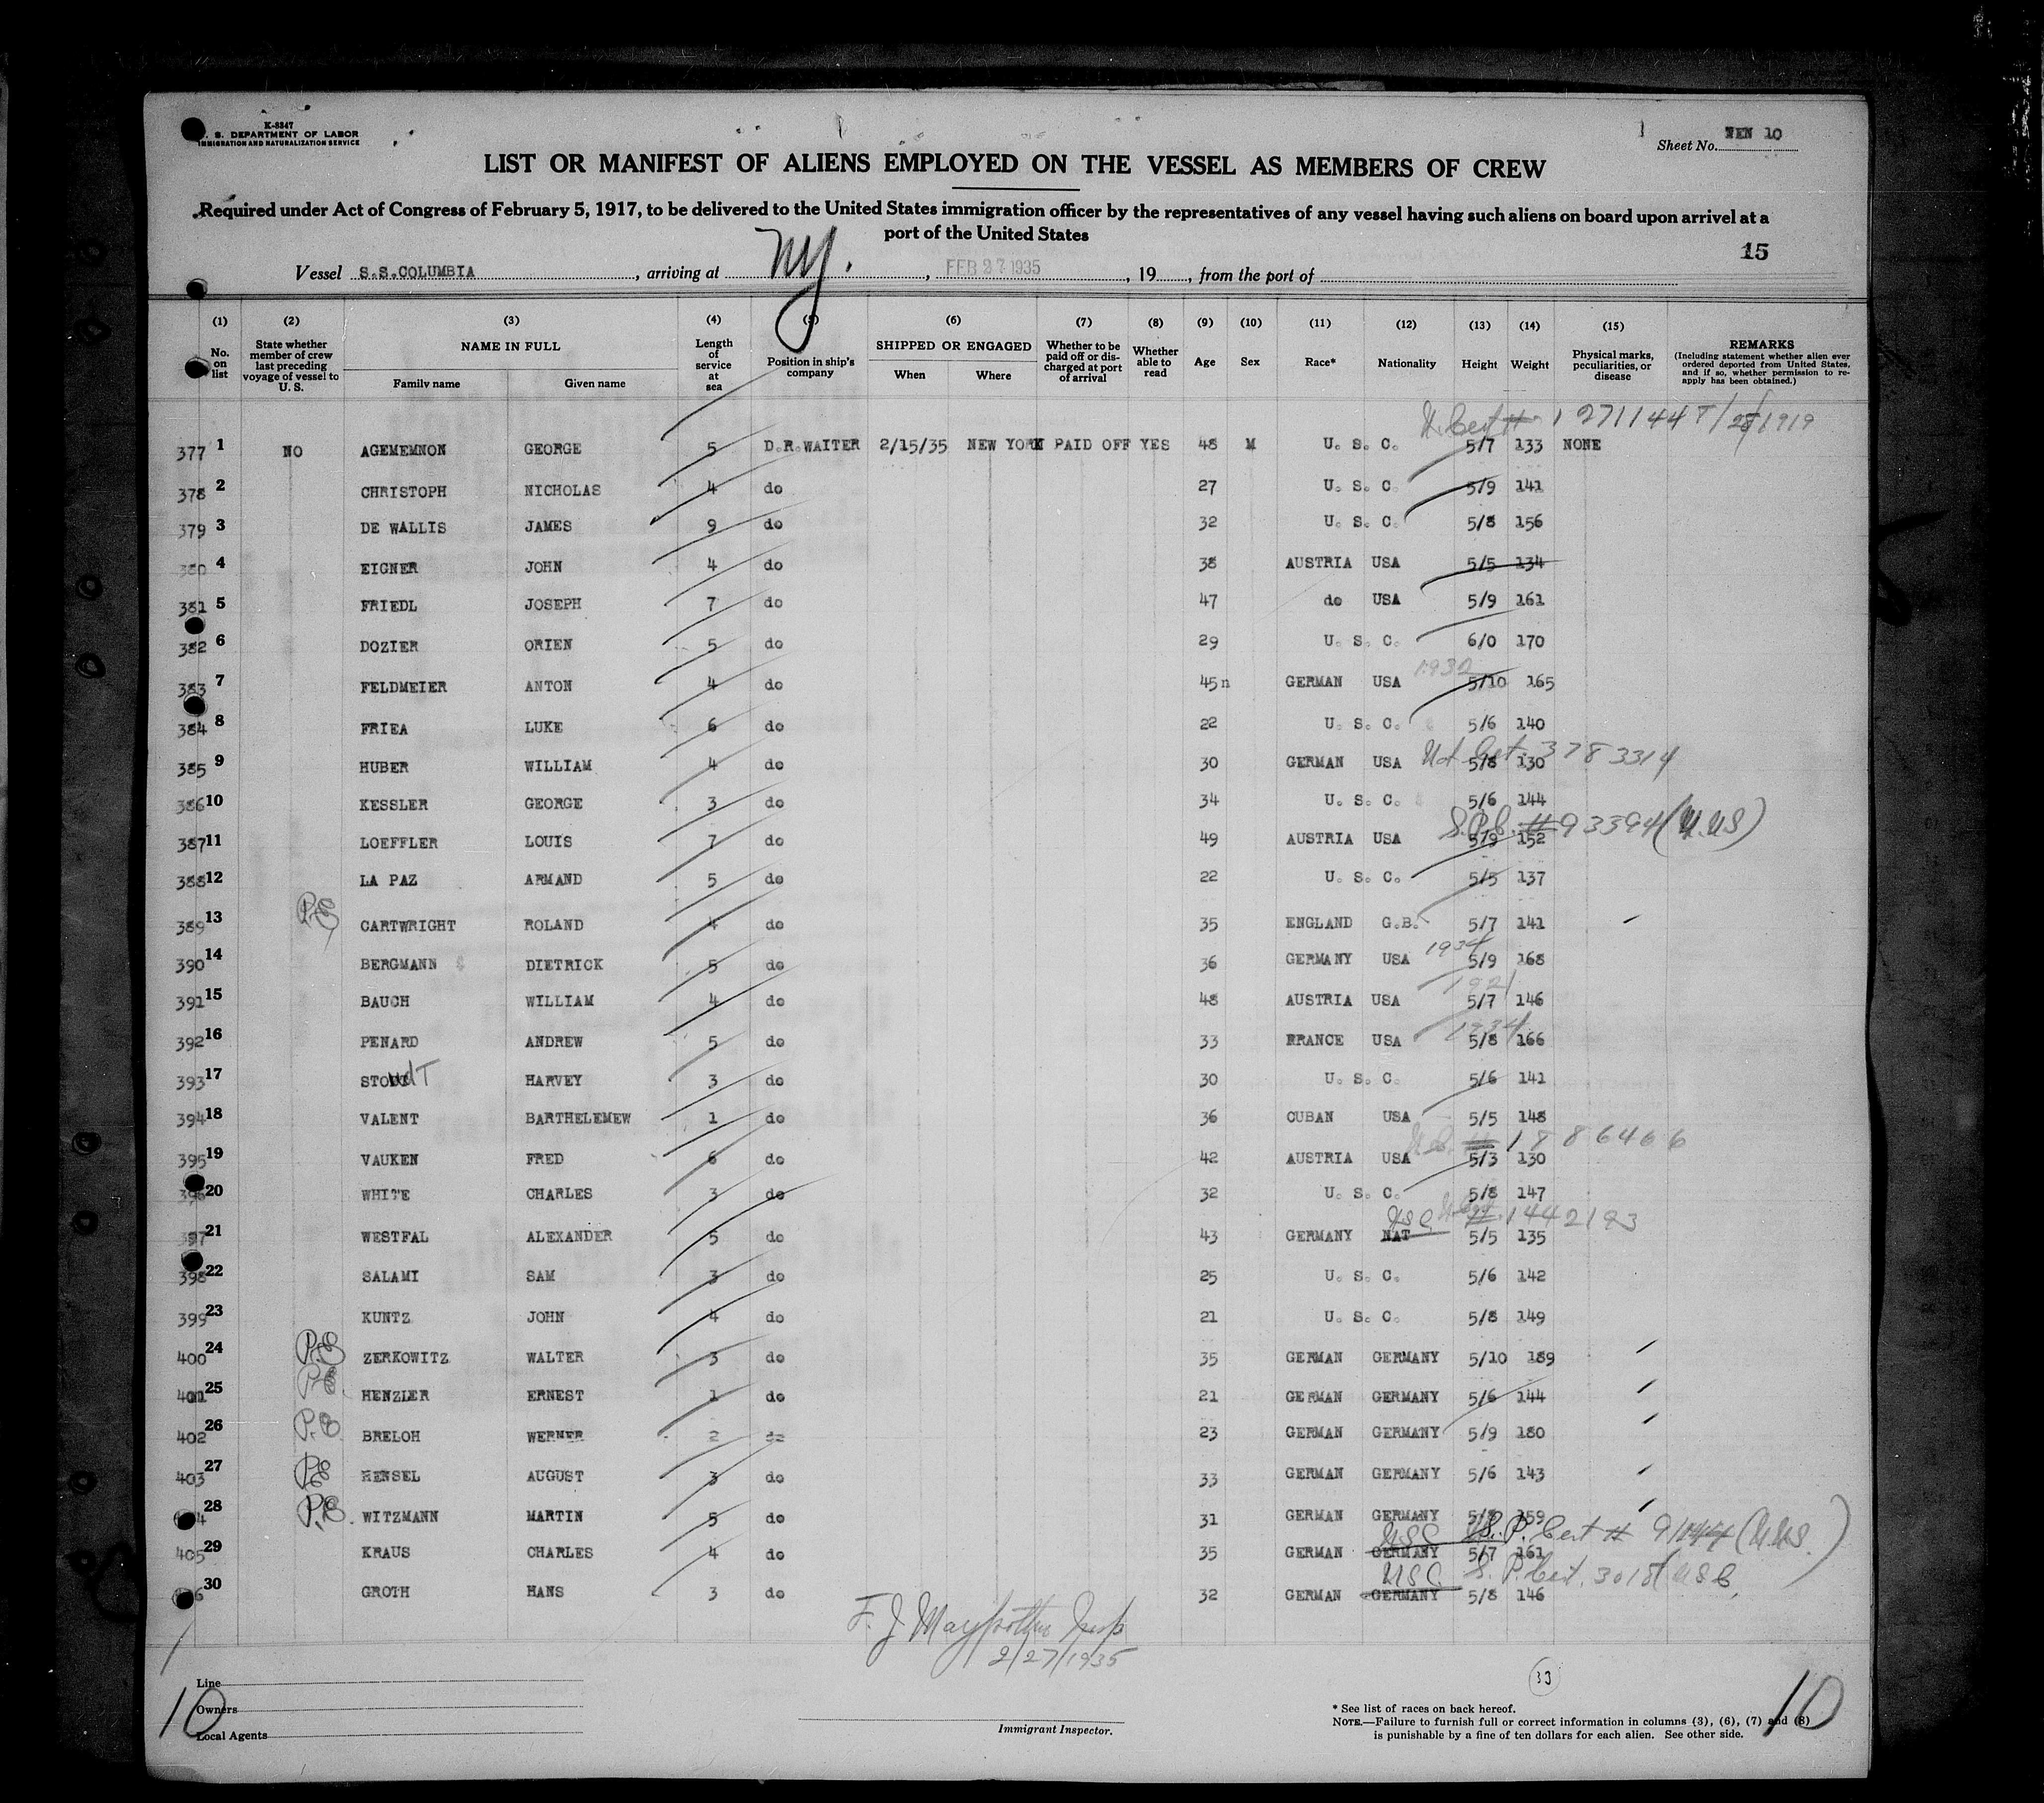 K-8347
U. S. DEPARTMENT OF LABOR
IMMIGRATION AND NATURALIZATION SERVICE
Sheet No. MEN 10
LIST OR MANIFEST OF ALIENS EMPLOYED ON THE VESSEL AS MEMBERS OF CREW
Required under Act of Congress of February 5, 1917, to be delivered to the United States immigration officer by the representatives of any vessel having such aliens on board upon arrival at a
port of the United States
15
Vessel S.S.COLUMBIA, arriving at NY., FEB 27 1935, 19, from the port of
(1) (2) (3) (4) (5) (6) (7) (8) (9) (10) (11) (12) (13) (14) (15)
No. on list State whether member of crew last preceding voyage of vessel to U. S. NAME IN FULL Family name Given name Length of service at sea Position in ship's company SHIPPED OR ENGAGED When Where Whether to be paid off or discharged at port of arrival Whether able to read Age Sex Race* Nationality Height Weight Physical marks, peculiarities, or disease REMARKS (Including statement whether alien ever ordered deported from United States, and if so, whether permission to reapply has been obtained.)
N. Cert # 1271144 T/28/1919
377 1 NO AGEMEMNON GEORGE 5 D.R.WAITER 2/15/35 NEW YORK PAID OFF YES 48 M U. S. C. 5/7 133 NONE
378 2 CHRISTOPH NICHOLAS 4 do 27 U. S. C. 5/9 141
379 3 DE WALLIS JAMES 9 do 32 U. S. C. 5/8 156
380 4 EIGNER JOHN 4 do 38 AUSTRIA USA 5/5 134
381 5 FRIEDL JOSEPH 7 do 47 do USA 5/9 161
382 6 DOZIER ORIEN 5 do 29 U. S. C. 6/0 170
1932
383 7 FELDMEIER ANTON 4 do 45n GERMAN USA 5/10 165
384 8 FRIEA LUKE 6 do 22 U. S. C. 5/6 140
385 9 HUBER WILLIAM 4 do 30 GERMAN USA 5/8 130 Nat Cert. 3783314
386 10 KESSLER GEORGE 3 do 34 U. S. C. 5/6 144
S.P.C. #93394
387 11 LOEFFLER LOUIS 7 do 49 AUSTRIA USA 5/9 152
388 12 LA PAZ ARMAND 5 do 22 U. S. C. 5/5 137
389 13 P.E CARTWRIGHT ROLAND 4 do 35 ENGLAND G.B. 5/7 141
1934
390 14 BERGMANN DIETRICK 5 do 36 GERMANY USA 5/9 168
1921
391 15 BAUCH WILLIAM 4 do 48 AUSTRIA USA 5/7 146
1934
392 16 PENARD ANDREW 5 do 33 FRANCE USA 5/8 166
393 17 HARVEY 3 do 30 U. S. C. 5/6 141
394 18 VALENT BARTHELEMEW 1 do 36 CUBAN USA 5/5 148
N.C. # 1886466
395 19 VAUKEN FRED 6 do 42 AUSTRIA USA 5/3 130
396 20 WHITE CHARLES 3 do 32 U. S. C. 5/8 147
USC N Cert #. 1442193
397 21 WESTFAL ALEXANDER 5 do 43 GERMANY NAT 5/5 135
398 22 SALAMI SAM 3 do 25 U. S. C. 5/6 142
399 23 KUNTZ JOHN 4 do 21 U. S. C. 5/8 149
400 24 P.E ZERKOWITZ WALTER 3 do 35 GERMAN GERMANY 5/10 189
401 25 P.E HENZLER ERNEST 1 do 21 GERMAN GERMANY 5/6 144
402 26 P.E BRELOH WERNER 2 do 23 GERMAN GERMANY 5/9 180
403 27 P.E HENSEL AUGUST 3 do 33 GERMAN GERMANY 5/6 143
404 28 P.E. WITZMANN MARTIN 5 do 31 GERMAN GERMANY 5/8 159
USC S.P. Cert #
405 29 KRAUS CHARLES 4 do 35 GERMAN GERMANY 5/7 161
USC S.P. Cert. 3018
406 30 GROTH HANS 3 do 32 GERMAN GERMANY 5/8 146
F. J. Insp
2/27/1935
33
Line
Owners
Local Agents
10
Immigrant Inspector.
* See list of races on back hereof.
NOTE.—Failure to furnish full or correct information in columns (3), (6), (7) and (8)
is punishable by a fine of ten dollars for each alien. See other side.
10